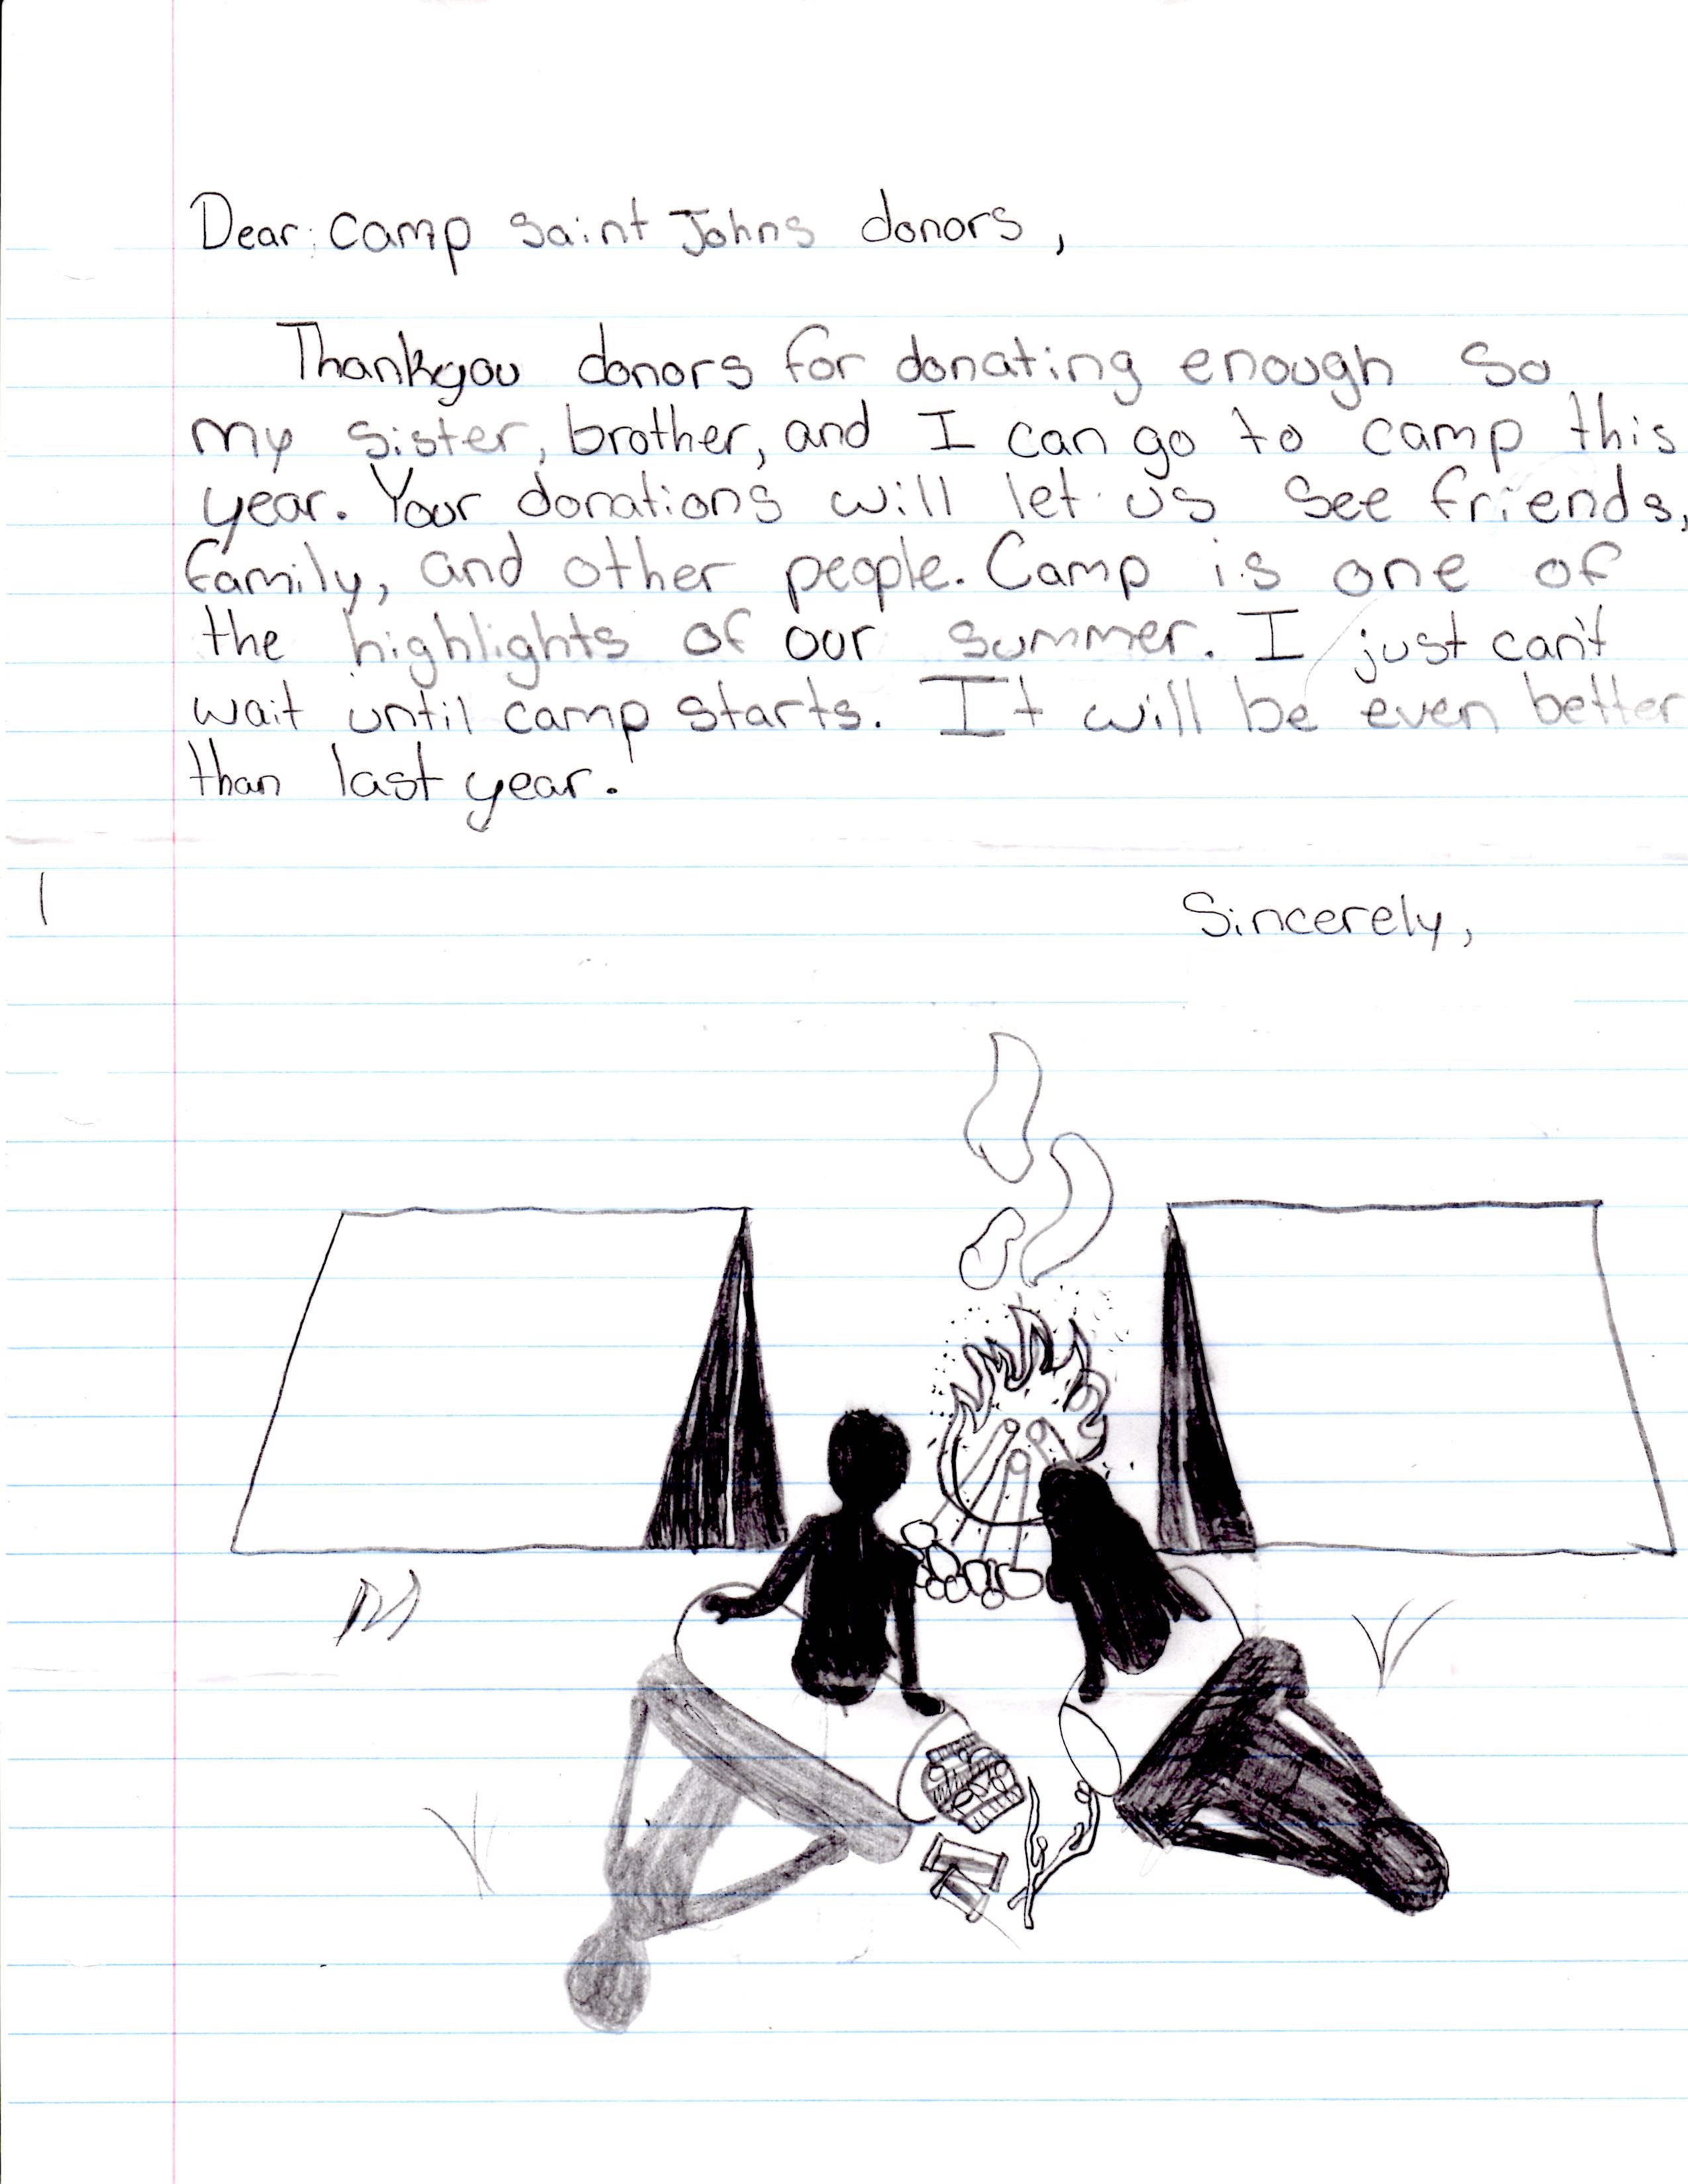 Dear: Camp Saint Johns donors,
Thankyou donors for donating enough so
my sister, brother, and I can go to camp this
year. Your donations will let us see friends,
family, and other people. Camp is one of
the highlights of our summer. I just can't
wait until camp starts. It will be even better
than last year.
Sincerely,